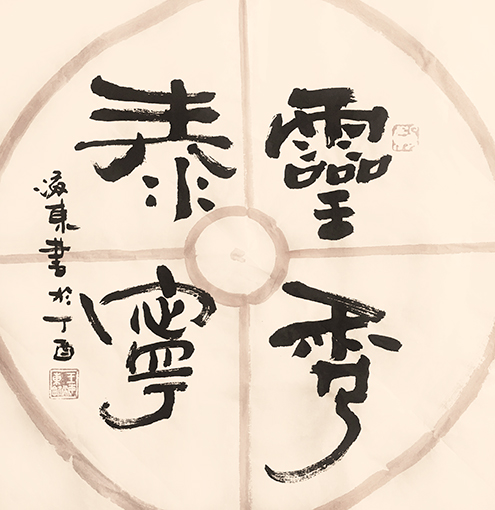 靈秀
泰寧
海東書於丁酉